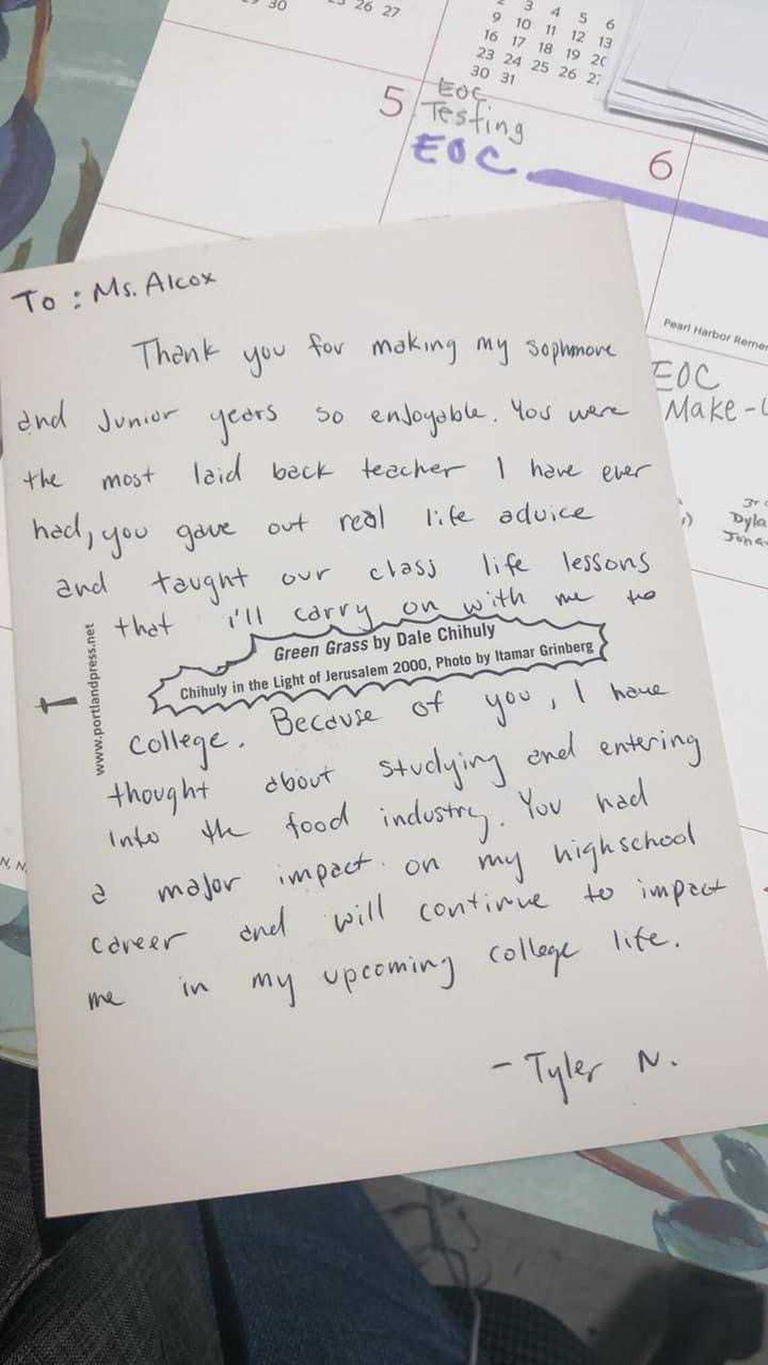 30
26 27
2 3 4 5 6
9 10 11 12 13
16 17 18 19
23 24 25 26
30 31
5
EOC
Testing
EOC
6
Pearl Harbor
EOC
Make-
To : Ms. Alcox
Thank you for making my sophmore
and Junior years so enjoyable. You were
the most laid back teacher I have ever
had, you gave out real life advice
and taught our class life lessons
that i'll carry on with me to
www.portlandpress.net
Green Grass by Dale Chihuly
Chihuly in the Light of Jerusalem 2000, Photo by Itamar Grinberg
college. Because of you, I have
thought about studying and entering
into the food industry. You had
a major impact on my highschool
career and will continue to impact
me in my upcoming college life.
- Tyler N.